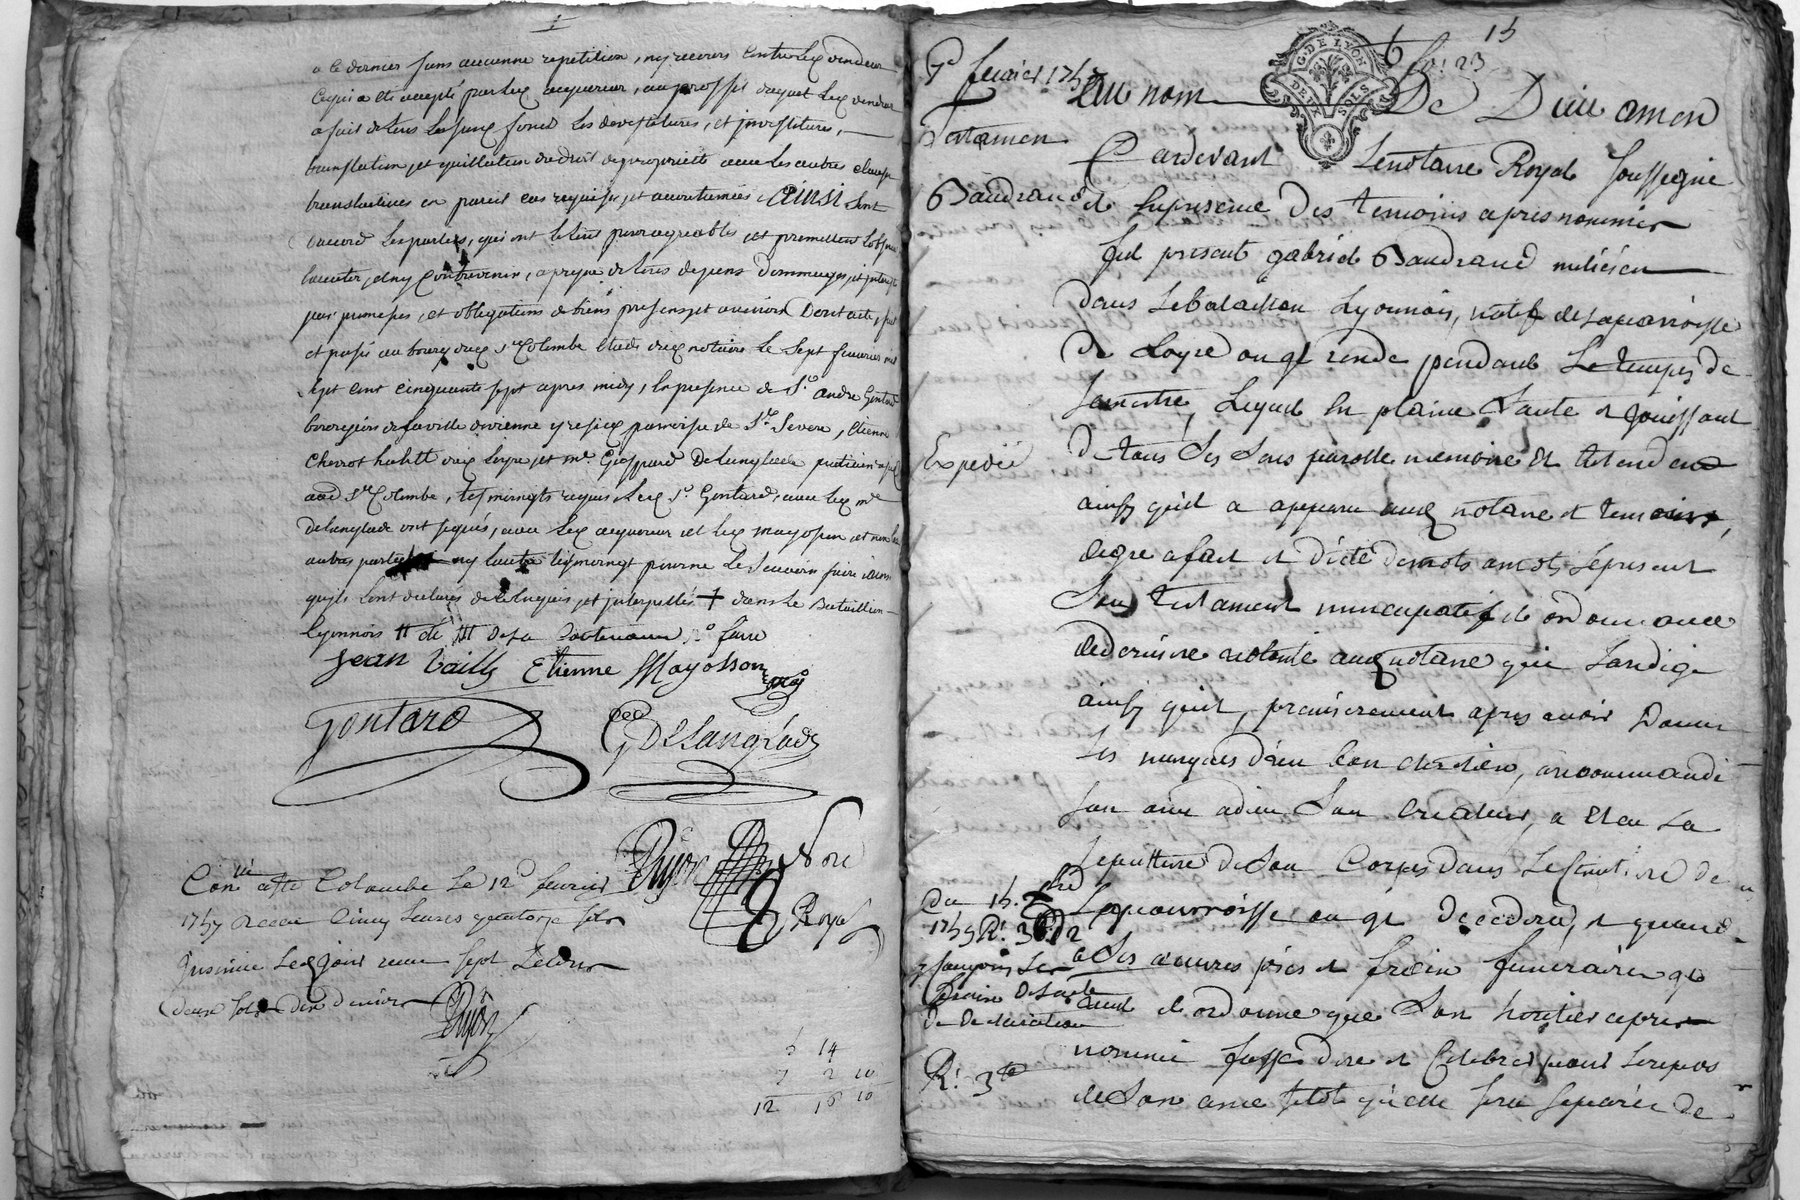 a ce dernier sans aucunne repetition, ny recours contre led vendeur
ce qui a été accepté par led acquereur, au proffit duquel led vendeur
a fait de tous lesd fond les devestitures, et investitures,
translation, et quittation de droit de proprieté avec les autres clauses
translatives en pareil cas requises, et accoutumées, Ainsi sont
d'accord les parties, qui ont le tout pour agreables et promettent l'observer
par promesses, et obligations de biens presens et avenirs Dont acte, fait
et passé au bourg dud Ste Colombe etude dud notaire le sept fevrier mil
sept cent cinquante sept apres midy, en presence de Sr. andre Gontard
bourgeois de la ville de vienne y residt paroisse de St. Severe, Etienne
Cherrot habitt dud Loyre, et me. Gaspard Delanglade praticien
aud Ste Colombe, tesmoingts requis, led Sr. Gontard, avec led me
delanglade ont signés, avec led acquereur et led mayosson et non les
autres parties ny l'autre tesmoingt pour ne le scavoir faire
qu'ils ont declarés de ce enquis, et interpellés + dans le Bataillion
Lyonnois
Jean Bailly Etienne Mayosson
Gontard G Delanglade
Dujon Nore
Royal
Conllé a Ste Colombe le 12e fevrier
1757 Receu Cinq Livres quatorze sols
Insinué led jour receu sept Livres
deux sols dix deniers
Dujon
5 14
7 2 10
12 16 10
15
fo: 23
G. DE LYON
DEUX SOLS
7e fevrier 1757
Testamen
Baudrand
Expedié
Au nom De Dieu amen
Pardevant Le notaire Royal soussigné
et En presence Des temoins apres nommés
fut present gabriel Baudrand milicien
dans le Batallion Lyonnois, natif de la parroisse
de Loyre ou il reside pendant Le temps de
semestre, Lequel En pleine Santé et jouissant
de tous Ses Sens parolle memoire Et Entendement
ainsy quil a apparu aud notaire et temoins,
de gre a fait et dicté de mots amots le present
Son testament nuncupatif et ordonnance
de derniere volonté aud notaire qui la redigé
ainsy quil suit, premierement apres avoir Donné
Les marques d'un bon chretien, a recommandé
son ame a dieu Son Createur, a Elu La
sepulture de Son Corps dans Le Cimetiere de
La parroisse ou il Decedera, et quand
a Ses œuvres pies et fraix funeraires il
veut et ordonne que Son heritier apres
nommé fasse dire et Celebrer pour le repos
de Son ame sitot qu'elle sera separée de
Du 15.
R. 3